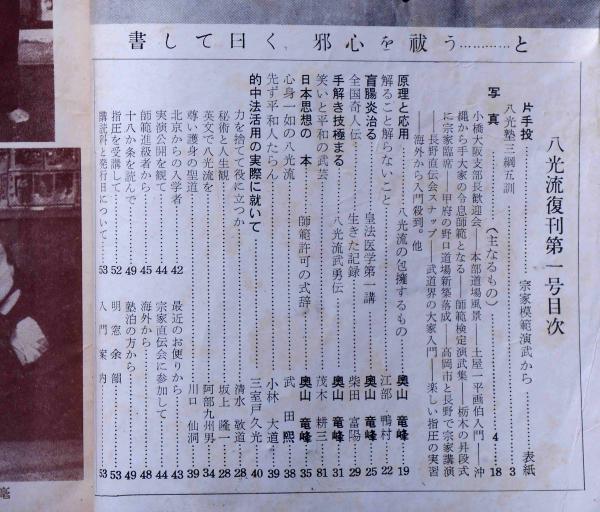 書して曰く、邪心を祓う…………と
八光流復刊第一号目次
片手投……………宗家模範演武から……………表紙
八光塾三綱五訓……………………3
写真………………(主なるもの)………………4―18
小橋大阪支部長歓迎会――本部道場風景――土屋一平画伯入門――沖
縄から手大家の令息師範となる――師範検定演武集――栃木の昇段式
に宗家臨席――甲府の野口道場新築落成――高岡市と長野で宗家講演
――長野直伝会スナップ――武道界の大家入門――楽しい指圧の実習
海外から入門殺到。他
原理と応用……八光流の包擁するもの……奥山竜峰…19
解ること解らないこと……………江部鴨村…22
盲腸炎治る……皇法医学第一講……奥山竜峰…25
全国奇人伝……生きた記録……柴田富陽…29
手解き技極まる……八光流武勇伝……奥山竜峰…31
笑いと平和の武芸……………茂木耕三…81
日本思想の本……師範許可の式辞……奥山竜峰…35
心身一如の八光流……………武田熙…38
先ず平和人たらん……………小林大道…39
的中法活用の実際に就いて……………三室戸久光…40
力を捨てて役に立つか……………清水敬道…28
秘術と人生観……………坂上隆一…28
英文で八光流を……………阿部九州男…34
尊い護身の聖道……………川口仙洞…39
北京からの入学者……42
実演公開を観て……44
師範進級者から……45
十八か条を読んで……49
指圧を受講して……52
購読料と発行日について…53
最近のお便りから……43
宗家直伝会に参加して……44
海外から……48
塾泊の方から……49
明窓余韻……53
入門案内……53